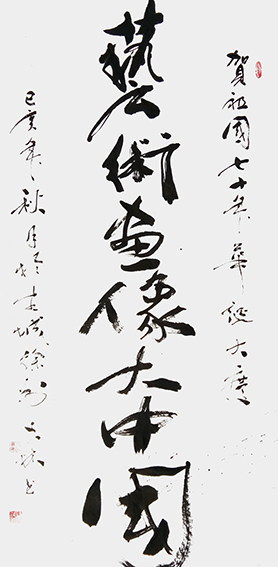 賀祖國七十年華誕大慶
藝術畫像大中國
己亥年秋月於古城徐州